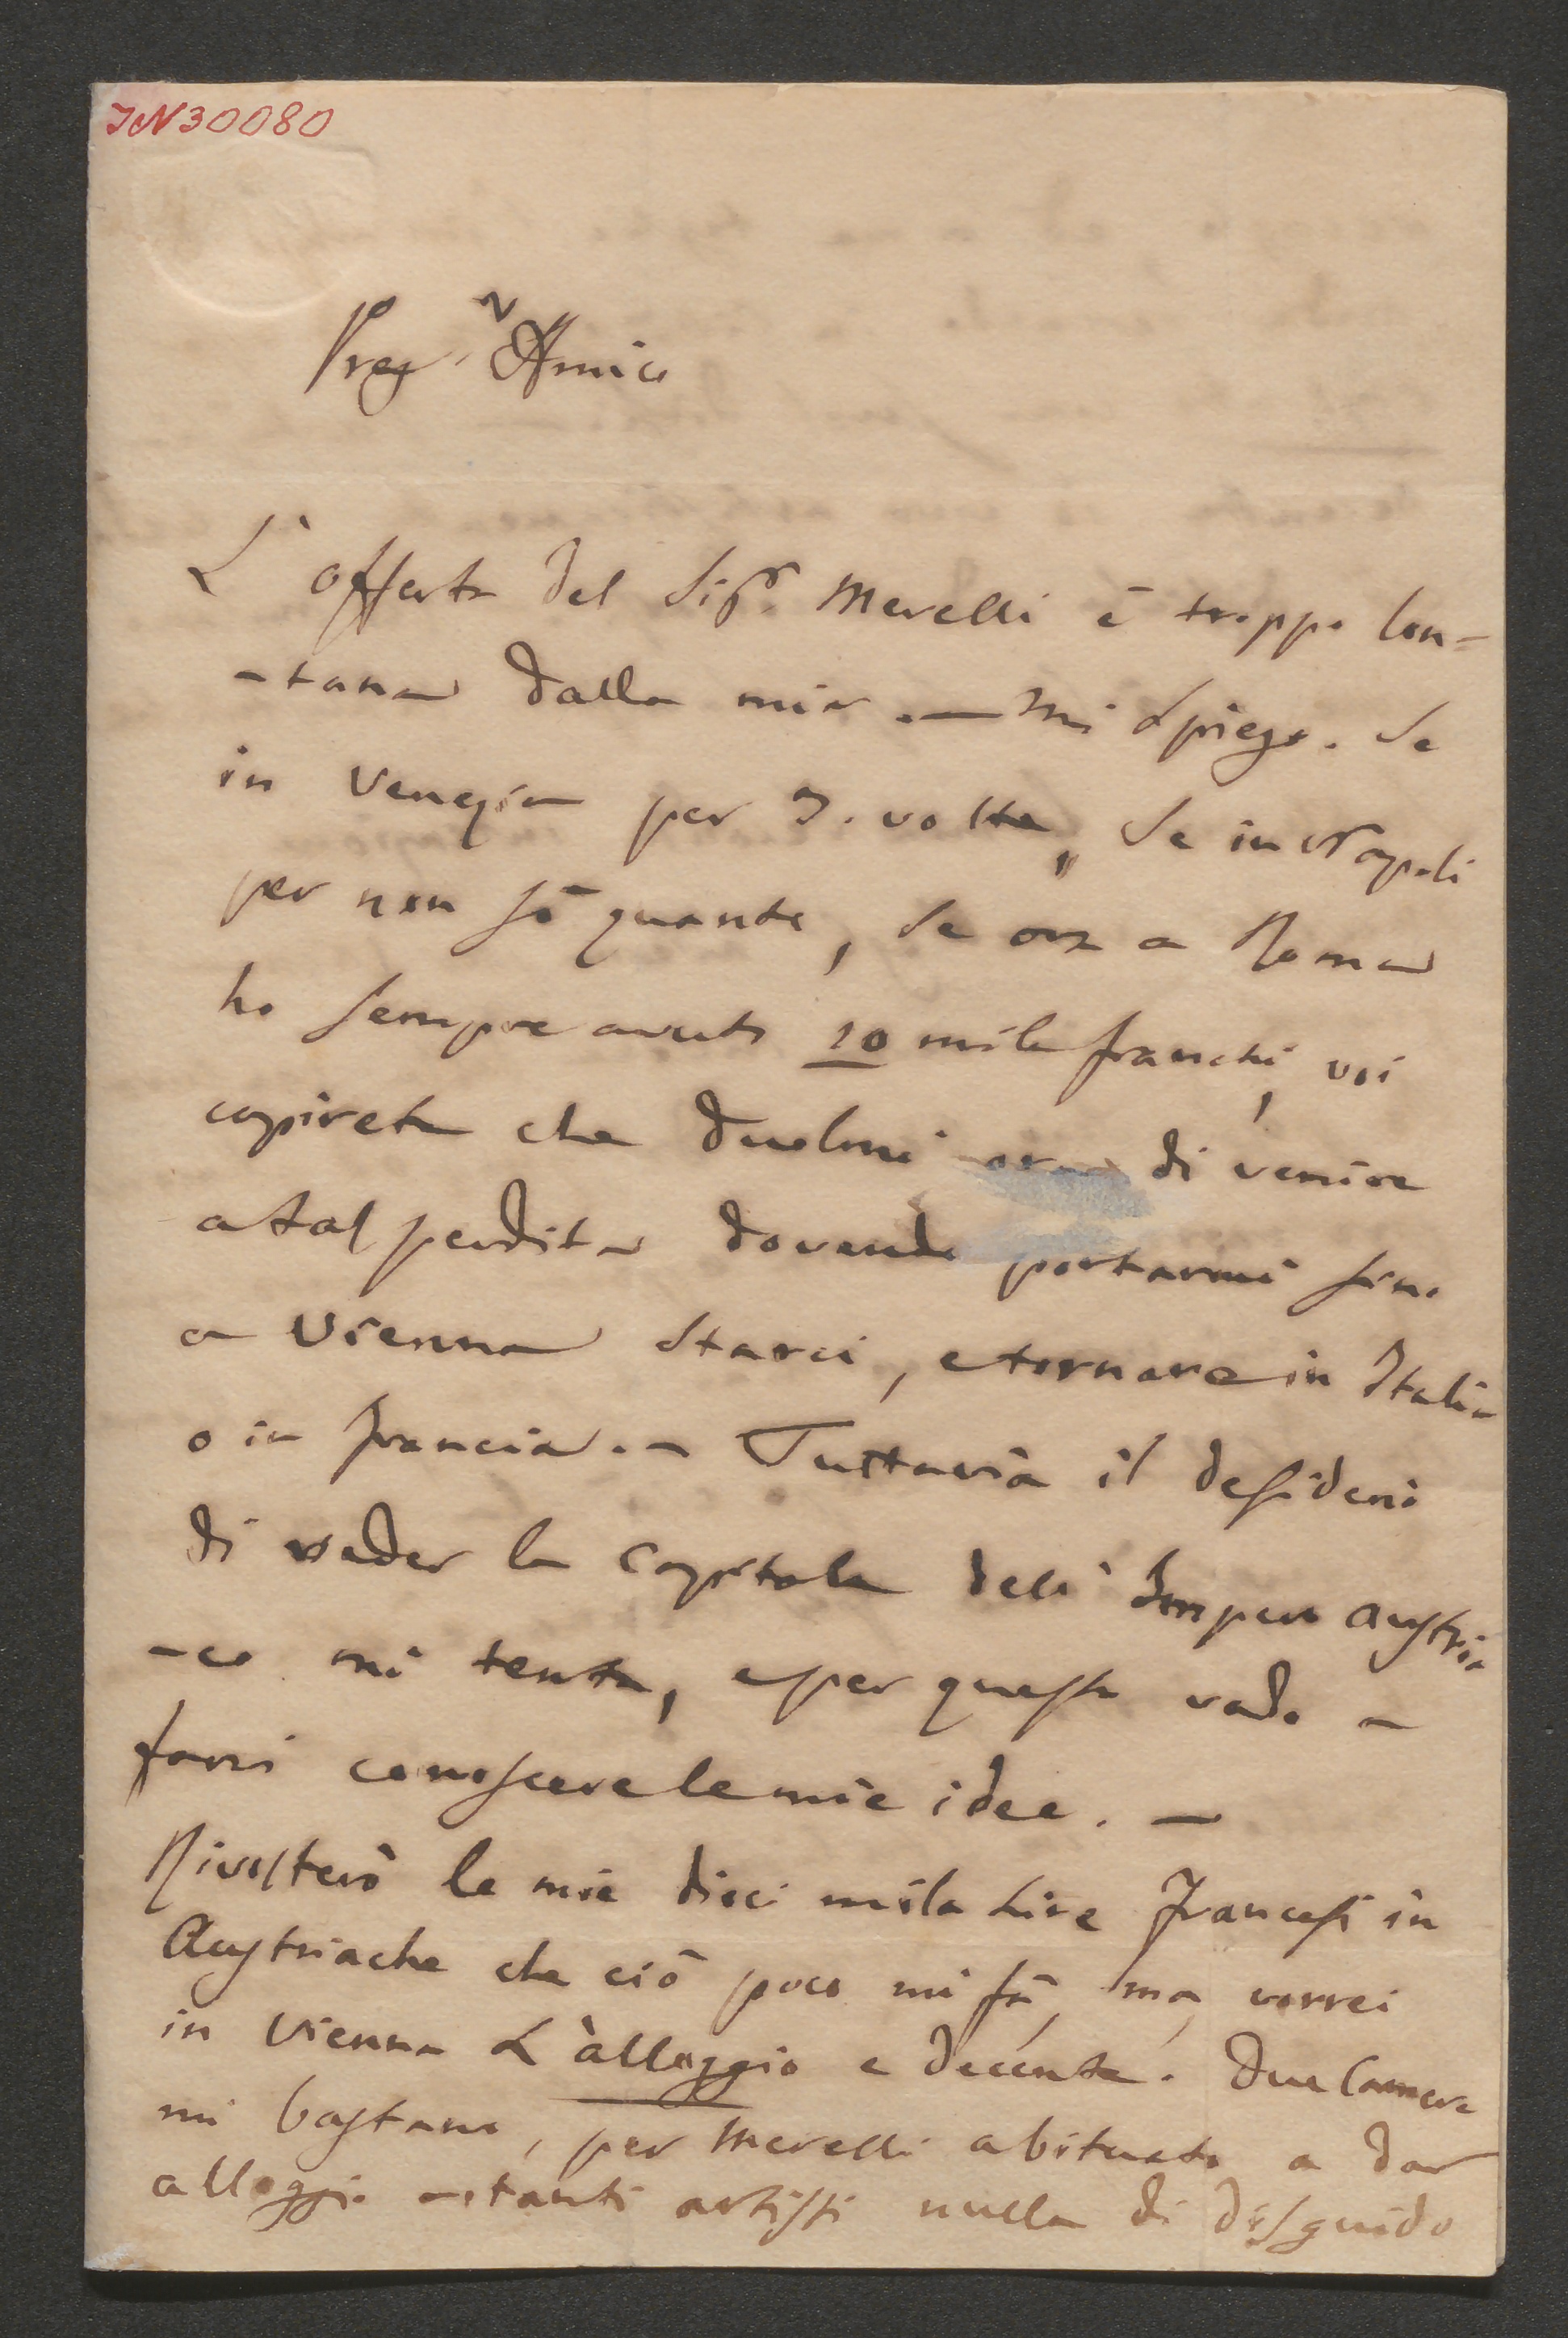 IN 30080
Preg. Amico
L'offerta del Sigr. Merelli è troppo lon-
-tana dalla mia. — Mi spiego. Se
in Venezia per 3. volte, Se in Napoli
per non sò quante, Se ora a Roma
ho sempre avuto 10 mila franchi, voi
capirete che duolmi ora di venire
a tal perdita dovendo portarmi fino
a Vienna starci, e tornare in Italia
o in francia. — Tuttavia il desiderio
di veder la Capitale dell'Impero austria
-co mi tenta, e per questo vado a
farvi conoscere le mie idee. —
Rivolterò le mie dieci mila Lire francesi in
Austriache che ciò poco mi fà, ma vorrei
in Vienna L'àlloggio e decente. Due Camere
mi bastano, per Merelli abituato a dar
alloggio a tanti artisti nulla di disguido